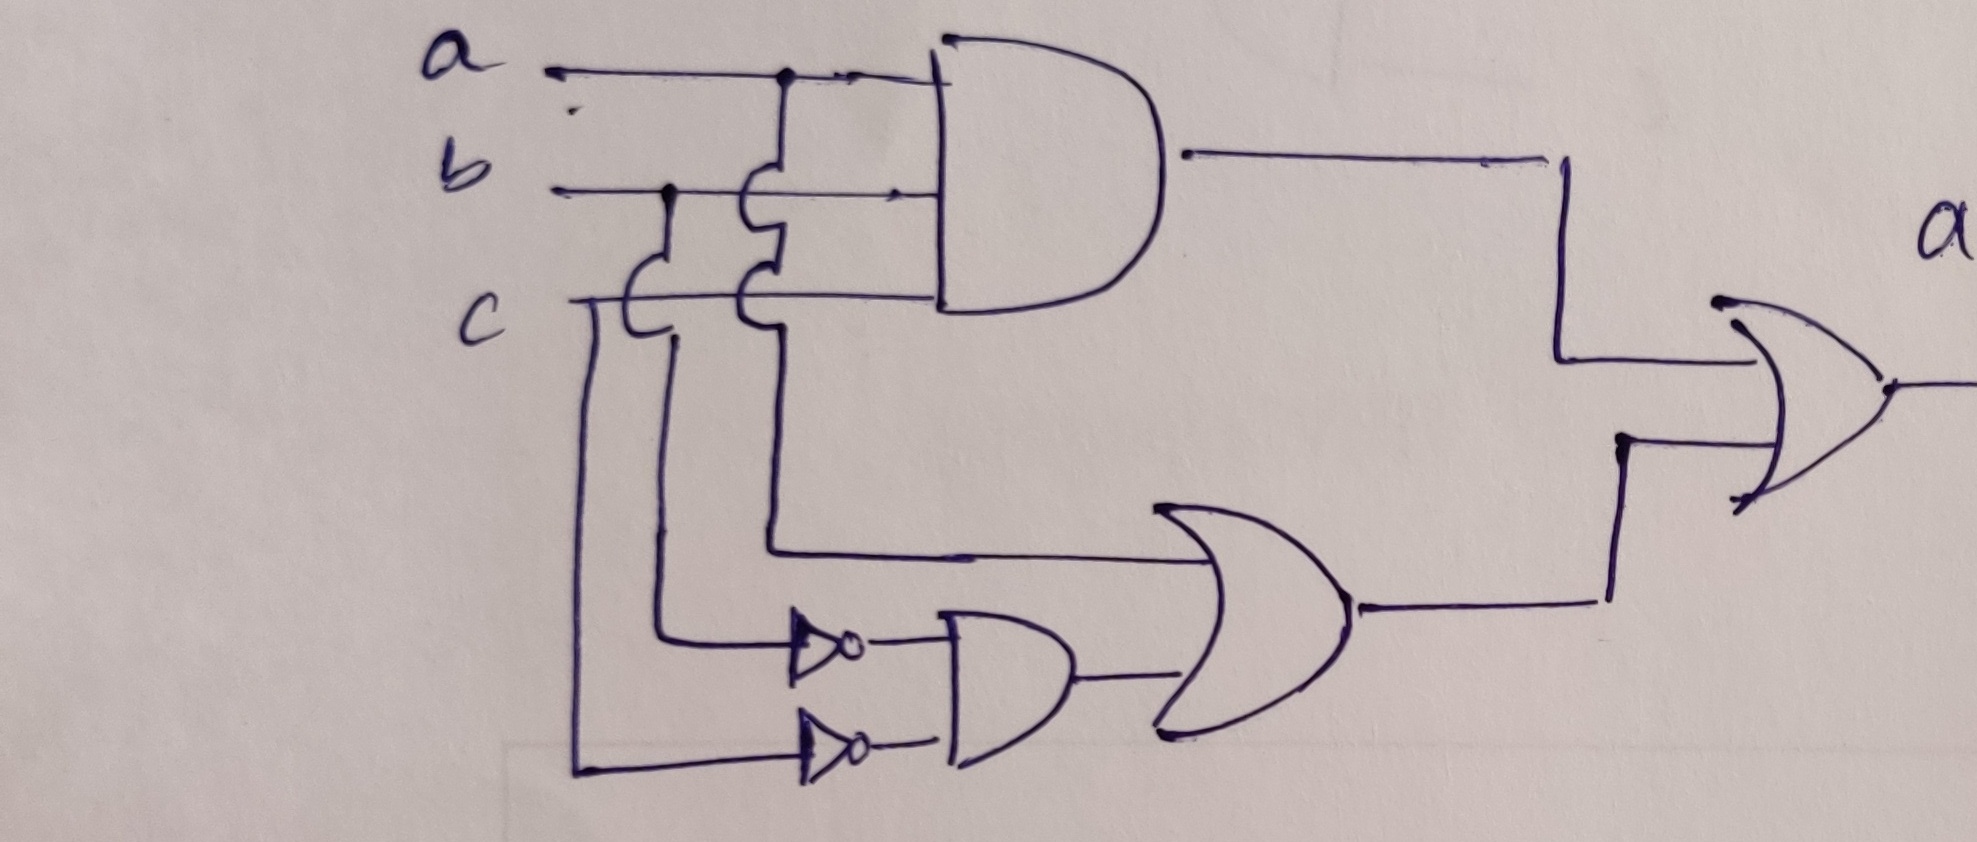 a
b
c
a